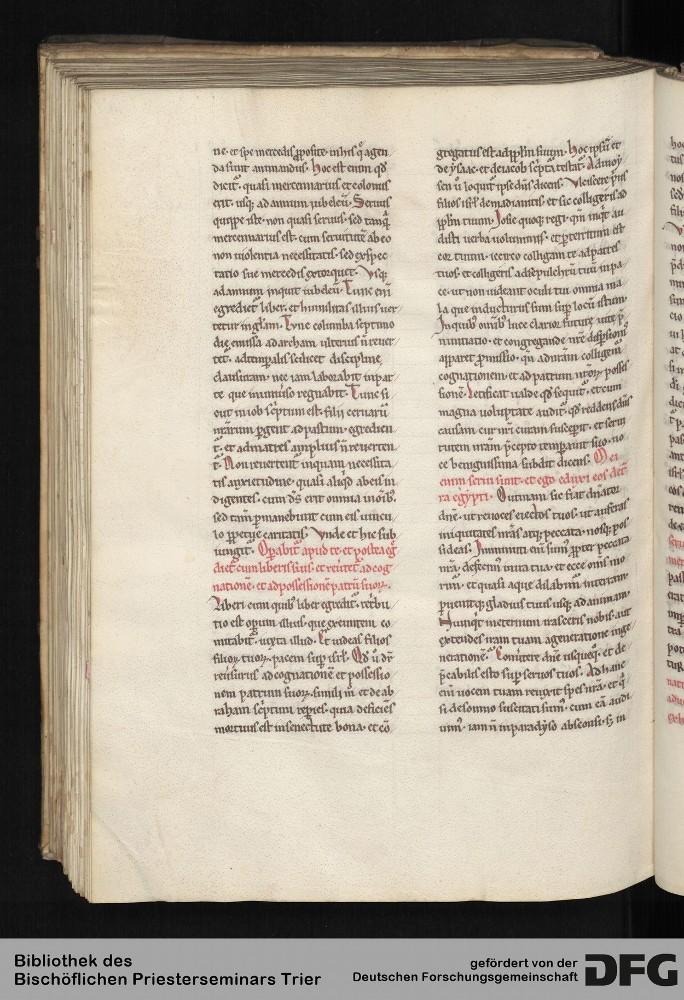 ne. et spe mercedis ꝓposite. in his q̄ agen
da sunt animandus. Hoc est enim qđ
dicit᷑. quasi mercennarius et colonus
erit. usq; ad annum iubileū. Seruus
quippe iste. non quasi seruus. sed tanq̄
mercennarius est. cum seruitutē ab eo
non uiolentia necessitatis. sed exspec
tatio sue mercedis extorquet. Vsq;
ad annum inquit iubileū. Tunc eni
egrediet᷑ liber. et humilitas illius uer
tetur in glam. Tunc columba septimo
die emissa ad archam ulterius n̄ reuer
tet᷑. ad temporalis scilicet discipline
clausuram. nec iam laborabit in par
te que in uniuerso regnabit. Tunc si
cut in iob sc̄ptum est. filii ceruarū
n̄rarum ꝑgent ad pastum. egredien
t᷑. et ad matres amplius n̄ reuerten
t᷑. Non reuertent᷑ inquam necessita
tis anxietudine. quasi aliqđ ab eis in
digentes. cum d̄s erit omnia in oīb᷒
sed tam̄ ꝑmanebunt cum eis uincu
lo ꝑpetue caritatis. Vnde et hic sub
iungit. Oꝑabit᷑ apud te. et postea eg̃
diet᷑ cum liberis suis. et reu̾tet᷑ ad cog
nationē. et ad possessionē patrū suoꝝ.
Liberi cum quib᷒ liber egredit᷑. retribu
tio est operum illius. que exeuntem co
mitabit᷑. iuxta illud. Et uideas filios
filioꝝ tuoꝝ. pacem sup isrl̄. Qđ u̾ dr̄
reu̾surus ad cognationē et possessio
nem patrum suoꝝ. simili m̊ et de ab
raham sc̄ptum reperies. quia deficiēs
mortuus est in senectute bona. et cō
gregatus est ad ppl̄m suum. Hoc ipsū et
de ysaac. et de iacob sc̄ptura testat᷑. Ad moy
sen u̾ loquit᷑ ipse dn̄s dicens. Vlciscere p̄us
filios isrl̄ de madianitis. et sic colligeris ad
ppl̄m tuum. Iosie quoq; regi. qm̄ inqt᷑ au
disti uerba uoluminis. et ꝑterritum est
cor tuum. iccirco colligam te ad patres
tuos. et colligeris ad sepulchrū tuū in pa
ce. ut non uideant oculi tui omnia ma
la que inducturus sum sup locū istum.
In quib᷒ omīb᷒ luce clarior future uite p̄
nuntiatio. et congregande nr̄e disp̄sioni
apparet ꝓmissio. qa ad n̄ram colligem᷑
cognationem. et ad patrum nr̄oꝝ posses
sionē. Letificat ualde qđ sequit᷑. et cum
magna uoluptate audit᷑. qđ reddens dn̄s
causam cur nr̄i curam suscepit. et serui
tutem nr̄am p̄cepto temꝑauit suo. uo
ce benignissima subdit dicens. Mei
enim serui sunt. et ego eduxi eos de t̾
ra egypti. Utinam sic fiat dn̄ator
dn̄e. ut reuoces eiectos tuos. ut auferas
iniquitates nr̄as atq; peccata. nosq; pos
sideas. Imminuti eni sum᷒ ꝓpter peccata
nr̄a. defecim᷒ in ira tua. et ecce om̄s mo
rim᷑. et quasi aque dilabim᷑ in terram.
ꝑuenitq; gladius tuus usq; ad animam.
Nunqđ in eternum irasceris nobis. aut
extendes iram tuam a generatione in ge
nerationē. Conu̾tere dn̄e usquequo. et de
p̄cabilis esto sup seruos tuos. Ad hanc
eni uocem tuam reuixit spes nr̄a. et q̊
si de somno suscitati sum᷒. cum eā audi
uim᷒. iam n̄ in paradyso absconsi. s; in
Bibliothek des
Bischöflichen Priesterseminars Trier
gefördert von der
Deutschen Forschungsgemeinschaft
DFG